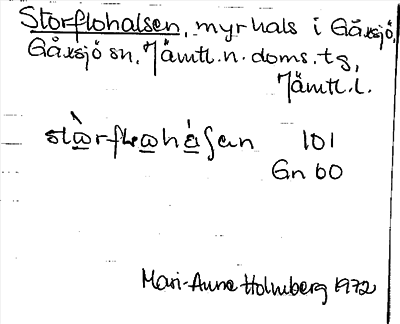 Storflohalsen, myrhals i Gåxsjö,
Gåxsjö sn, Jämtl. n. doms. tg,
Jämtl. l.
stɷ̀rflɷháʃan 101
Gn 60
Mari-Anne Holmberg 1972